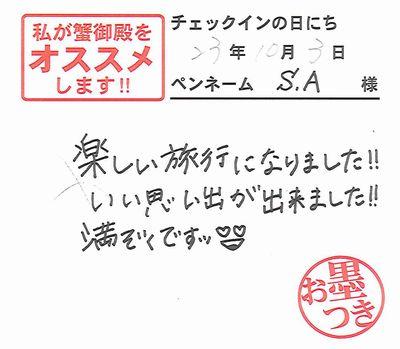 私が蟹御殿を
オススメ
します!!
チェックインの日にち
23年10月3日
ペンネーム S.A 様
楽しい旅行になりました!!
いい思い出が出来ました!!
満ぞくですッ
お墨つき